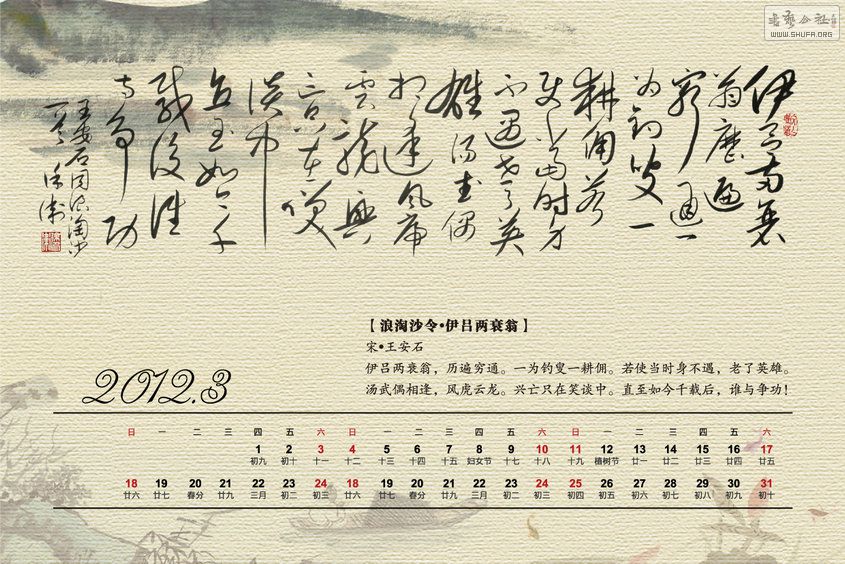 書藝公社
WWW.SHUFA.ORG
伊吕两衰
翁歷遍
窮通一
为钓叟一
耕佣若
使当时身
不遇老了英
雄汤武偶
相逢風虎
雲龍興
亡只在笑
談中
直至如今千
載後谁
与争功
王安石词浪淘沙
一首
【浪淘沙令•伊吕两衰翁】
宋•王安石
伊吕两衰翁，历遍穷通。一为钓叟一耕佣。若使当时身不遇，老了英雄。
汤武偶相逢，风虎云龙。兴亡只在笑谈中。直至如今千载后，谁与争功！
2012.3
日 一 二 三 四 五 六 日 一 二 三 四 五 六 日 一 二 三 四 五 六
1 2 3 4 5 6 7 8 9 10 11 12 13 14 15 16 17
初九 初十 十一 十二 十三 十四 十五 妇女节 十七 十八 十九 植树节 廿一 廿二 廿三 廿四 廿五
18 19 20 21 22 23 24 18 19 20 21 22 23 24 25 26 27 28 29 30 31
廿六 廿七 春分 廿九 三月 初二 初三 廿六 廿七 春分 廿九 三月 初二 初三 初四 初五 初六 初七 初八 初九 初十